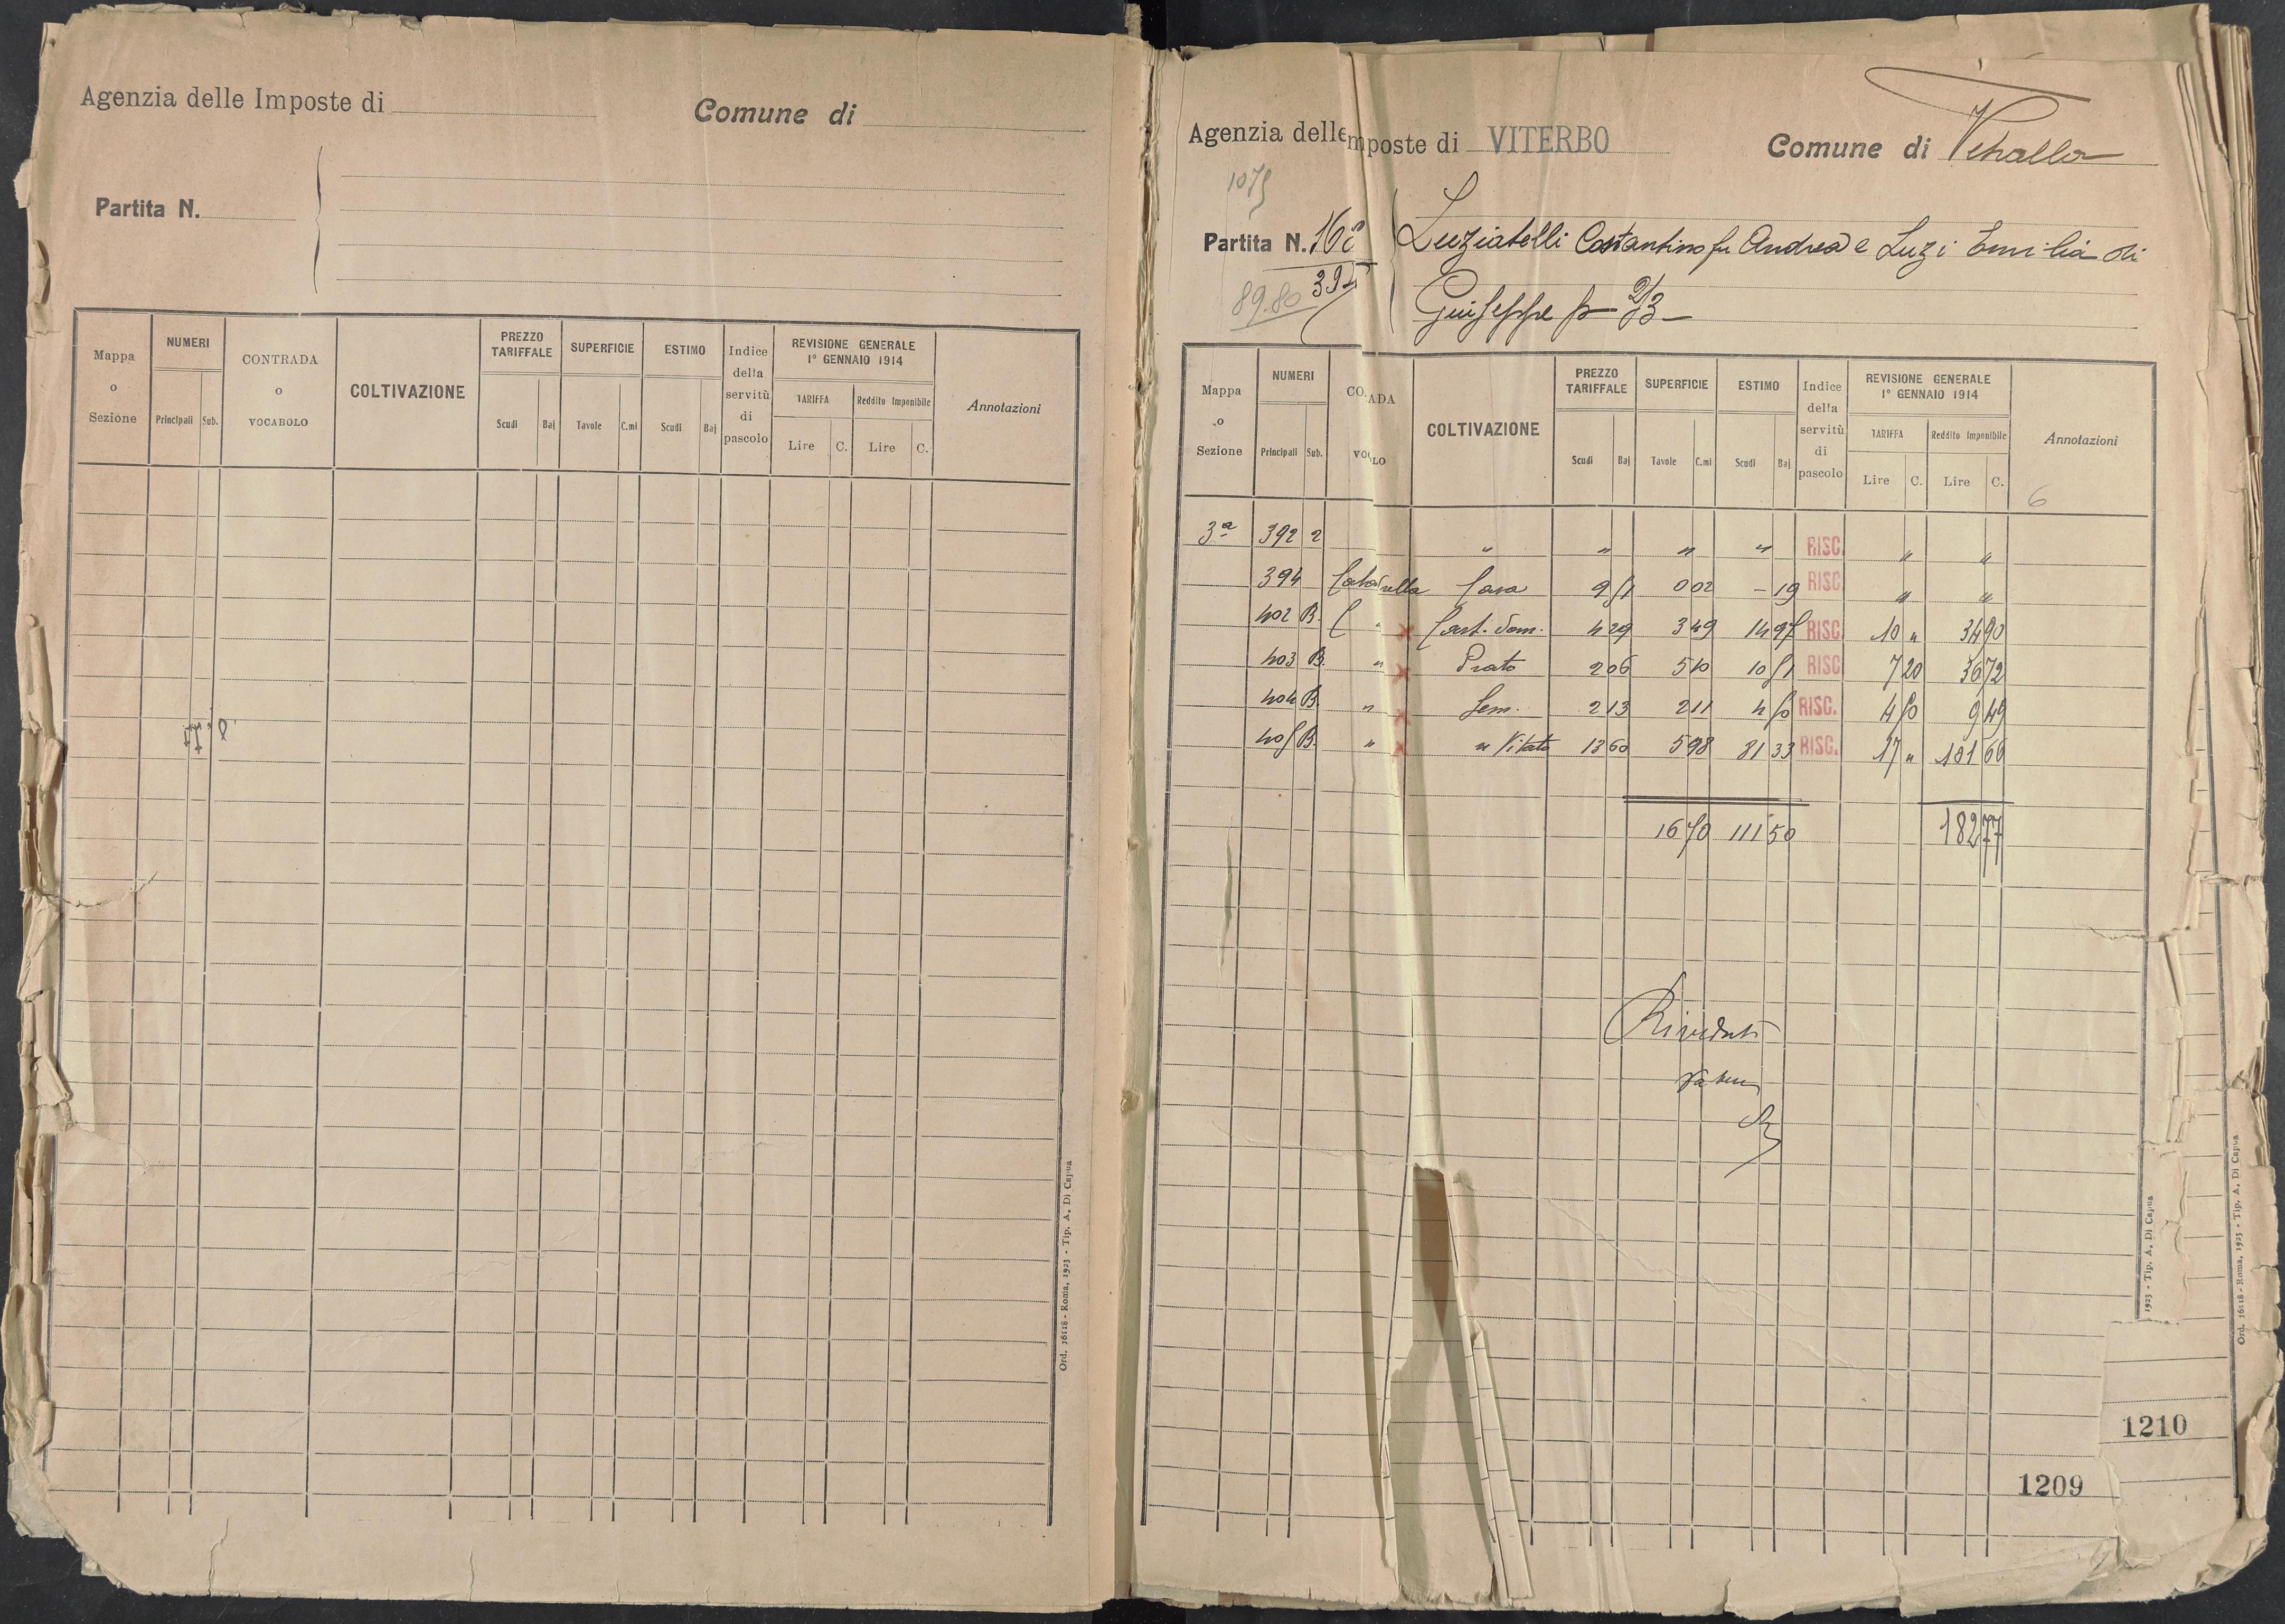 Agenzia delle Imposte di
Comune di
Partita N.
Mappa o Sezione
NUMERI
Principali Sub.
CONTRADA o VOCABOLO
COLTIVAZIONE
PREZZO TARIFFALE
Scudi Baj
SUPERFICIE
Tavole C.mi
ESTIMO
Scudi Baj
Indice della servitù di pascolo
REVISIONE GENERALE 1° GENNAIO 1914
TARIFFA
Lire C.
Reddito Imponibile
Lire C.
Annotazioni
Ord. 16118 - Roma, 1923 - Tip. A. Di Capua
Agenzia delle mposte di VITERBO
Comune di Vetralla
1075
Partita N.
395
89.80
Luziatelli Costantino fu Andrea e Luzi Emilia di
Giuseppe p 2/3
Mappa o Sezione
NUMERI
Principali Sub.
CO ADA o VO LO
COLTIVAZIONE
PREZZO TARIFFALE
Scudi Baj
SUPERFICIE
Tavole C.mi
ESTIMO
Scudi Baj
Indice della servitù di pascolo
REVISIONE GENERALE 1° GENNAIO 1914
TARIFFA
Lire C.
Reddito Imponibile
Lire C.
Annotazioni
6
3ª 392 2 " " " " RISC. " "
394 Casa 9 51 0 02 - 19 RISC. " "
402 B. " x Cast. dom. 4 29 3 49 14 97 RISC. 10 " 34 90
403 B. " x Prato 2 06 5 10 10 51 RISC. 7 20 36 72
404 B. " x Sem. 2 13 2 11 4 50 RISC. 4 50 9 49
405 B. " x " Vitato 13 60 5 98 81 33 RISC. 17 " 101 66
16 70 111 50 182 77
Riveduti
1923 - Tip. A. Di Capua
Ord. 16118 - Roma, 1923 - Tip. A. Di Capua
1210
1209